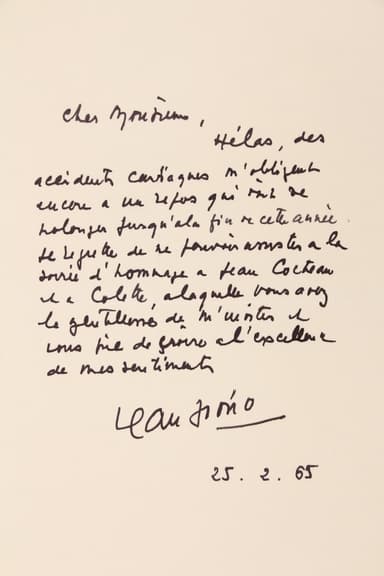 Cher Monsieur,
Hélas, des
accidents cardiaques m'obligent
encore a un repos qui doit se
prolonger jusqu'à la fin de cette année.
Je regrette de ne pouvoir assister a la
soirée d'hommage a Jean Cocteau
et a Colette, a laquelle vous avez
la gentillesse de m'inviter et
vous prie de croire a l'excellence
de mes sentiments
Jean Giono
25 . 2 . 65